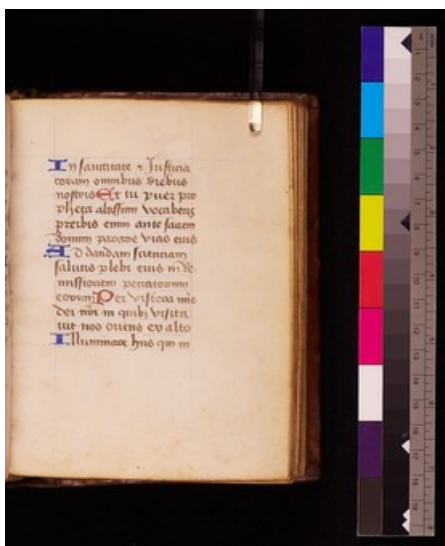 In sanctitate ⁊ Justicia
coram omnibus diebus
nostris Et tu puer pro
pheta altissimi vocaberis
preibis enim ante faciem
domini parare vias eius
Ad dandam scientiam
salutis plebi eius in re
missionem peccatorum
eorum Per viscera mie
dei nri in quibꝫ visita
uit nos oriens ex alto
Illuminare hiis qui in